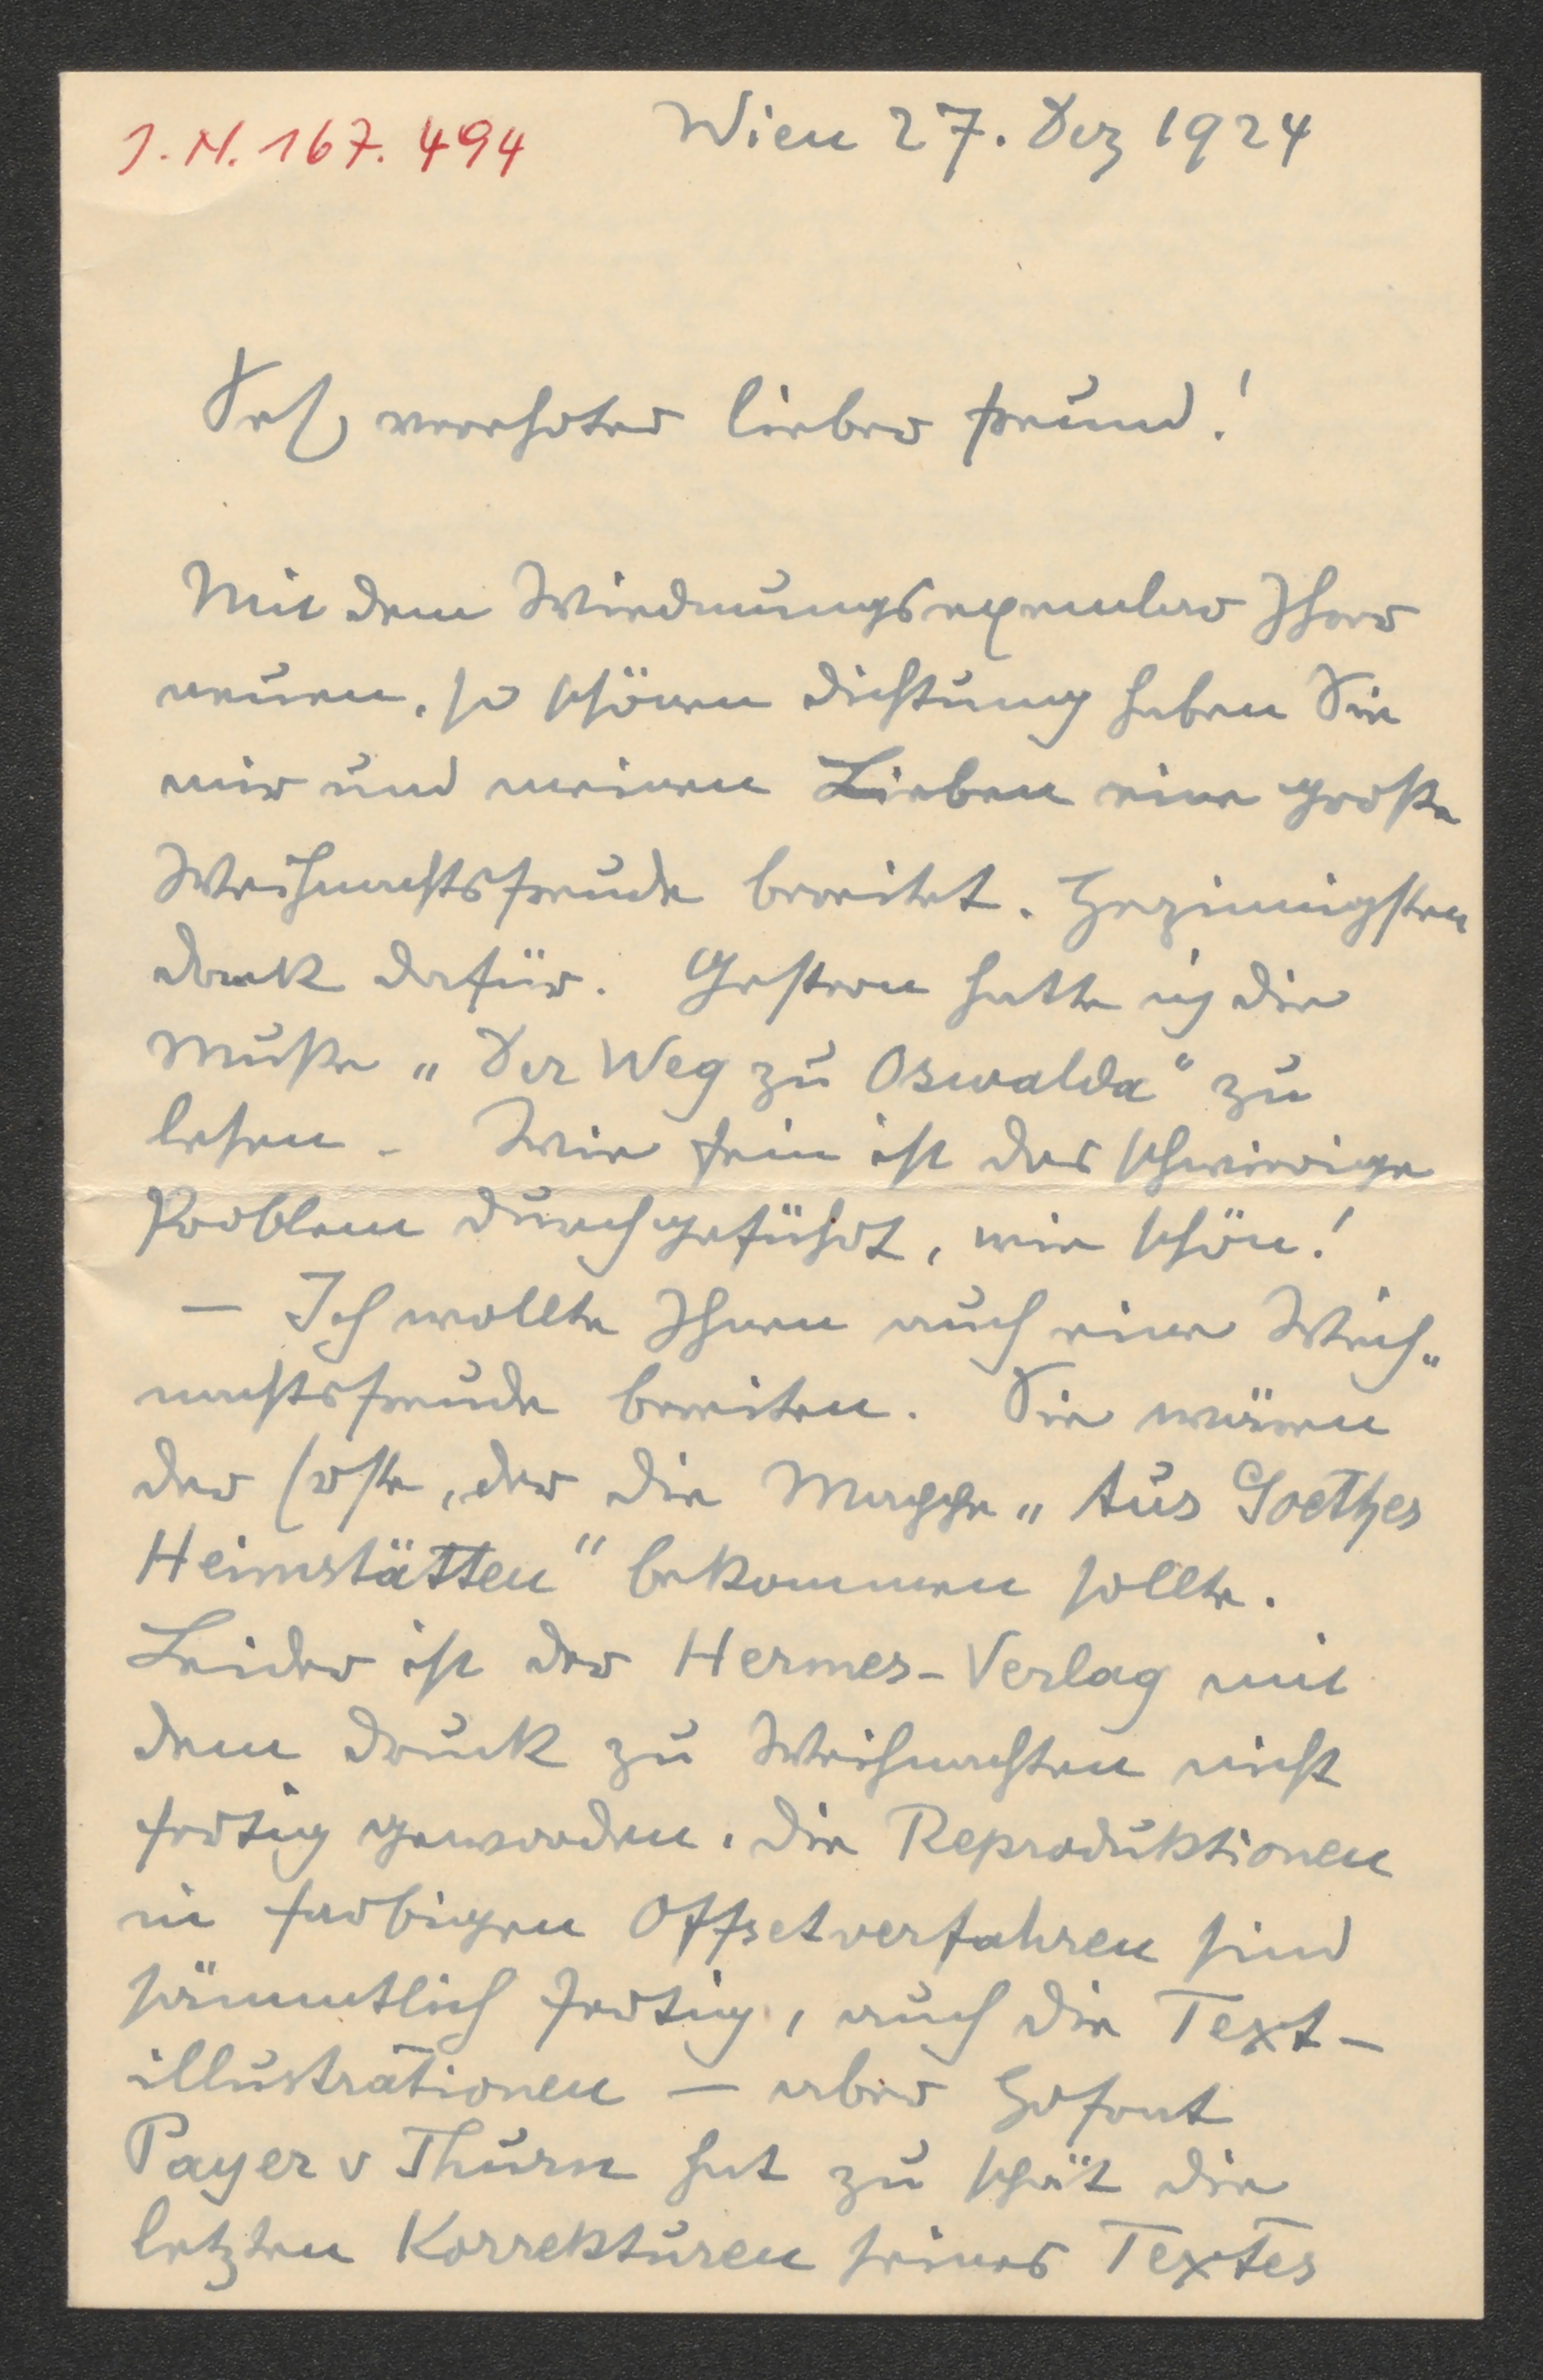 J. N. 167.494
Wien 27. Dez 1924
Sehr verehrter lieber Freund!
Mit dem Wiedmungsexemplar Ihrer
neuen, so schönen Dichtung haben Sie
mir und meinen Lieben eine große
Weihnachtsfreude bereitet. Herzinnigsten
Dank dafür. Gestern hatte ich die
Muße „Der Weg zu Oswalda“ zu
lesen. Wie fein ist das schwierige
Problem durchgeführt, wie schön!
— Ich wollte Ihnen auch eine Weih„
nachtsfreude bereiten. Sie wären
der Erste, der die Mappe „Aus Goethes
Heimstätten“ bekommen sollte.
Leider ist der Hermes-Verlag mit
dem Druck zu Weihnachten nicht
fertig geworden. Die Reproduktionen
in farbigen Offsetverfahren sind
sämmtlich fertig, auch die Text-
illustrationen — aber Hofrat
Payer v Thurn hat zu spät die
letzten Korrekturen seines Textes